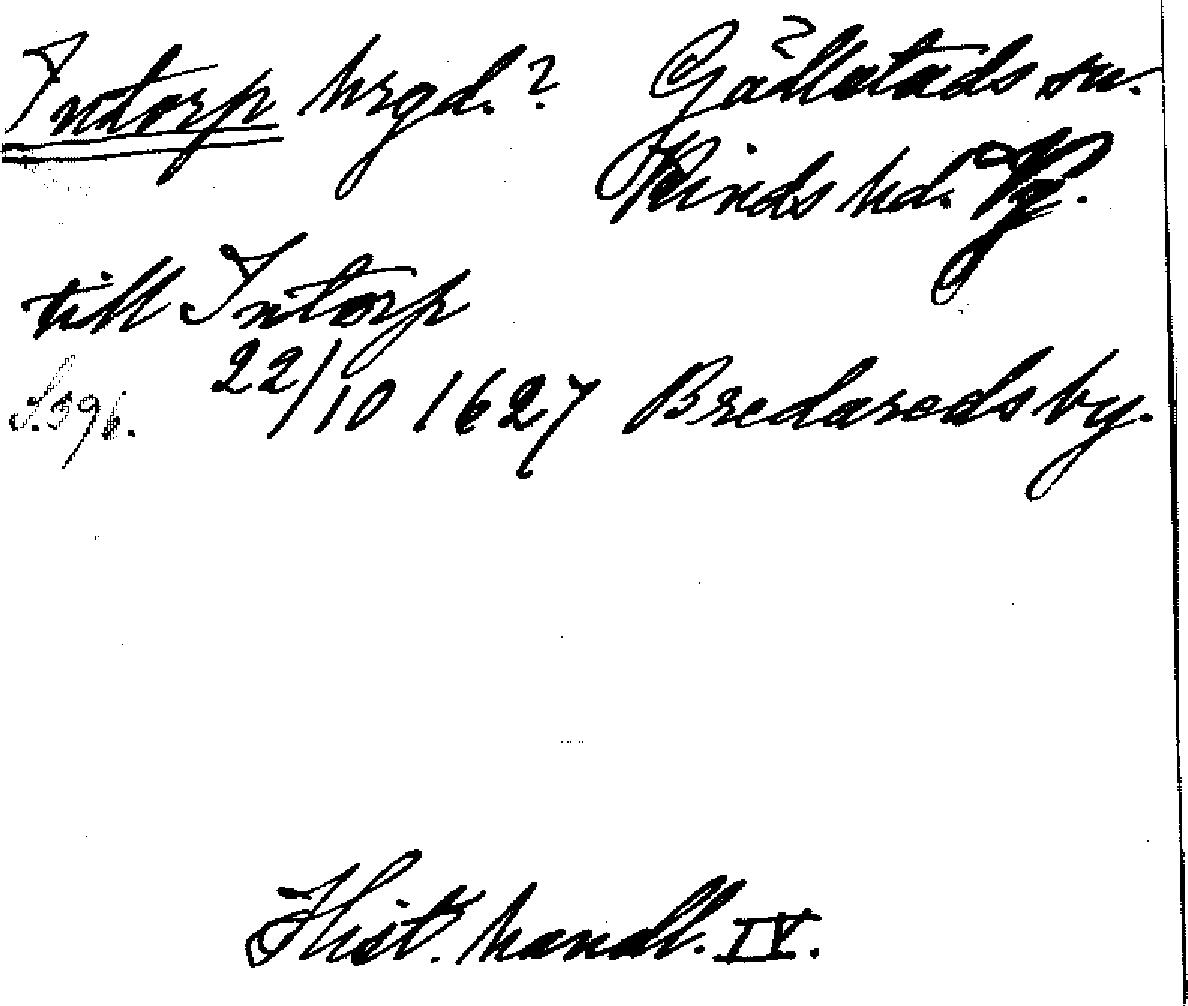 Intorp hrgd.? Gällstads sn.
Kinds hd. Vg.
till Intorp
S. 396. 22/10 1627 Bredareds by.
Hist. handl. IV.